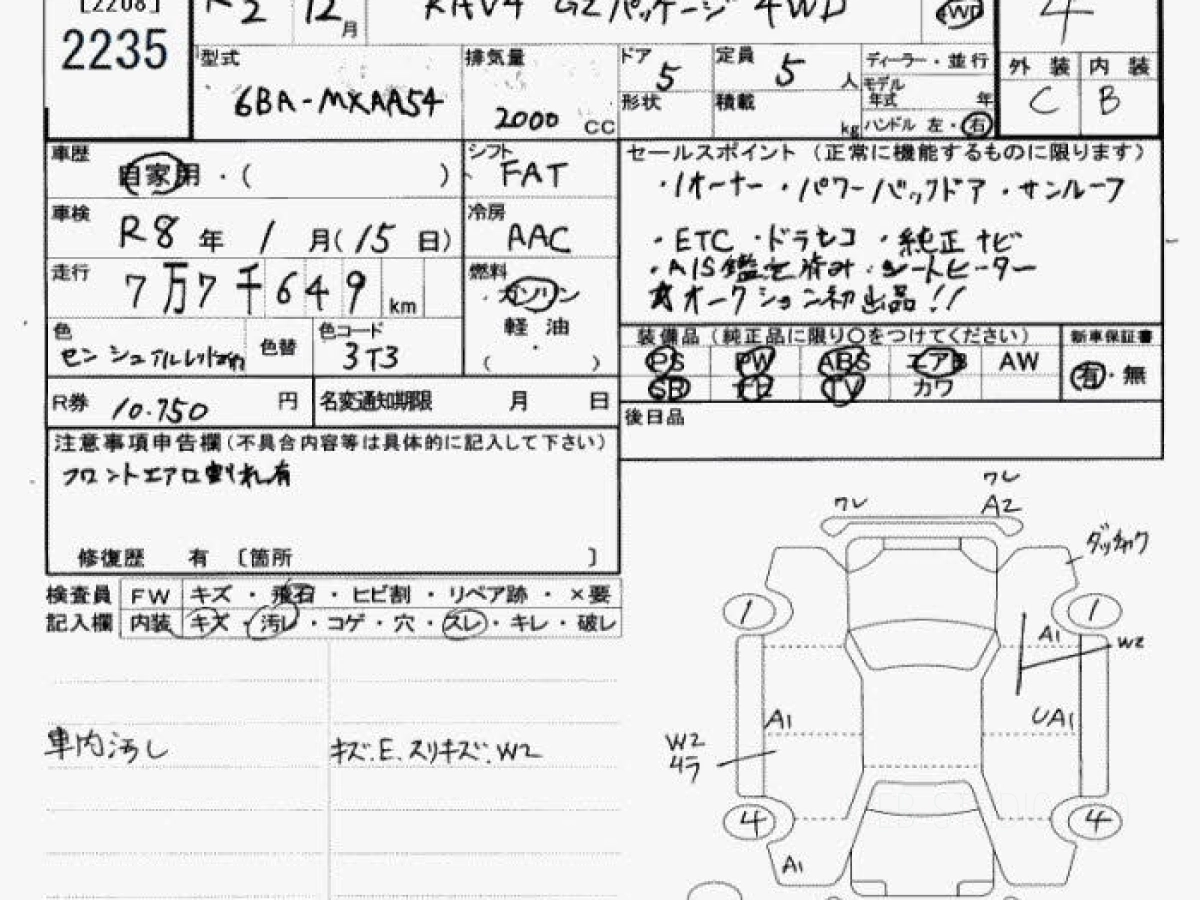 [2208]
2235
R2 12月
RAV4 G Zパッケージ 4WD
4WD
4
型式
6BA-MXAA54
排気量
2000 CC
ドア
5
定員
5 人
形状
積載
kg
ディーラー・並行
モデル
年式 年
ハンドル 左・右
外装 内装
C B
車歴
自家用・( )
シフト
FAT
車検
R8年 1月(15日)
冷房
AAC
走行
7万7千649km
燃料
ガソリン
軽油
( ・ )
色
色替
色コード
3T3
R券 10.750 円
名変通知期限 月 日
セールスポイント(正常に機能するものに限ります)
・1オーナー ・パワーバックドア ・サンルーフ
・ETC ・ドラレコ ・純正ナビ
・AIS鑑定済み・シートヒーター
★オークション初出品!!
装備品(純正品に限り○をつけてください)
新車保証書
PS PW ABS エアB AW
有・無
SR TV カワ
後日品
注意事項申告欄(不具合内容等は具体的に記入して下さい)
フロントエアロ割れ有
修復歴 有 〔箇所 〕
検査員 FW キズ・飛石・ヒビ割・リペア跡・×要
記入欄 内装 キズ・汚レ・コゲ・穴・スレ・キレ・破レ
車内汚し
キズ.E.スリキズ.W2
ワレ
ワレ
A2
ダッチャク
1
1
A1
W2
A1
UA1
W2
4ラ
4
4
A1